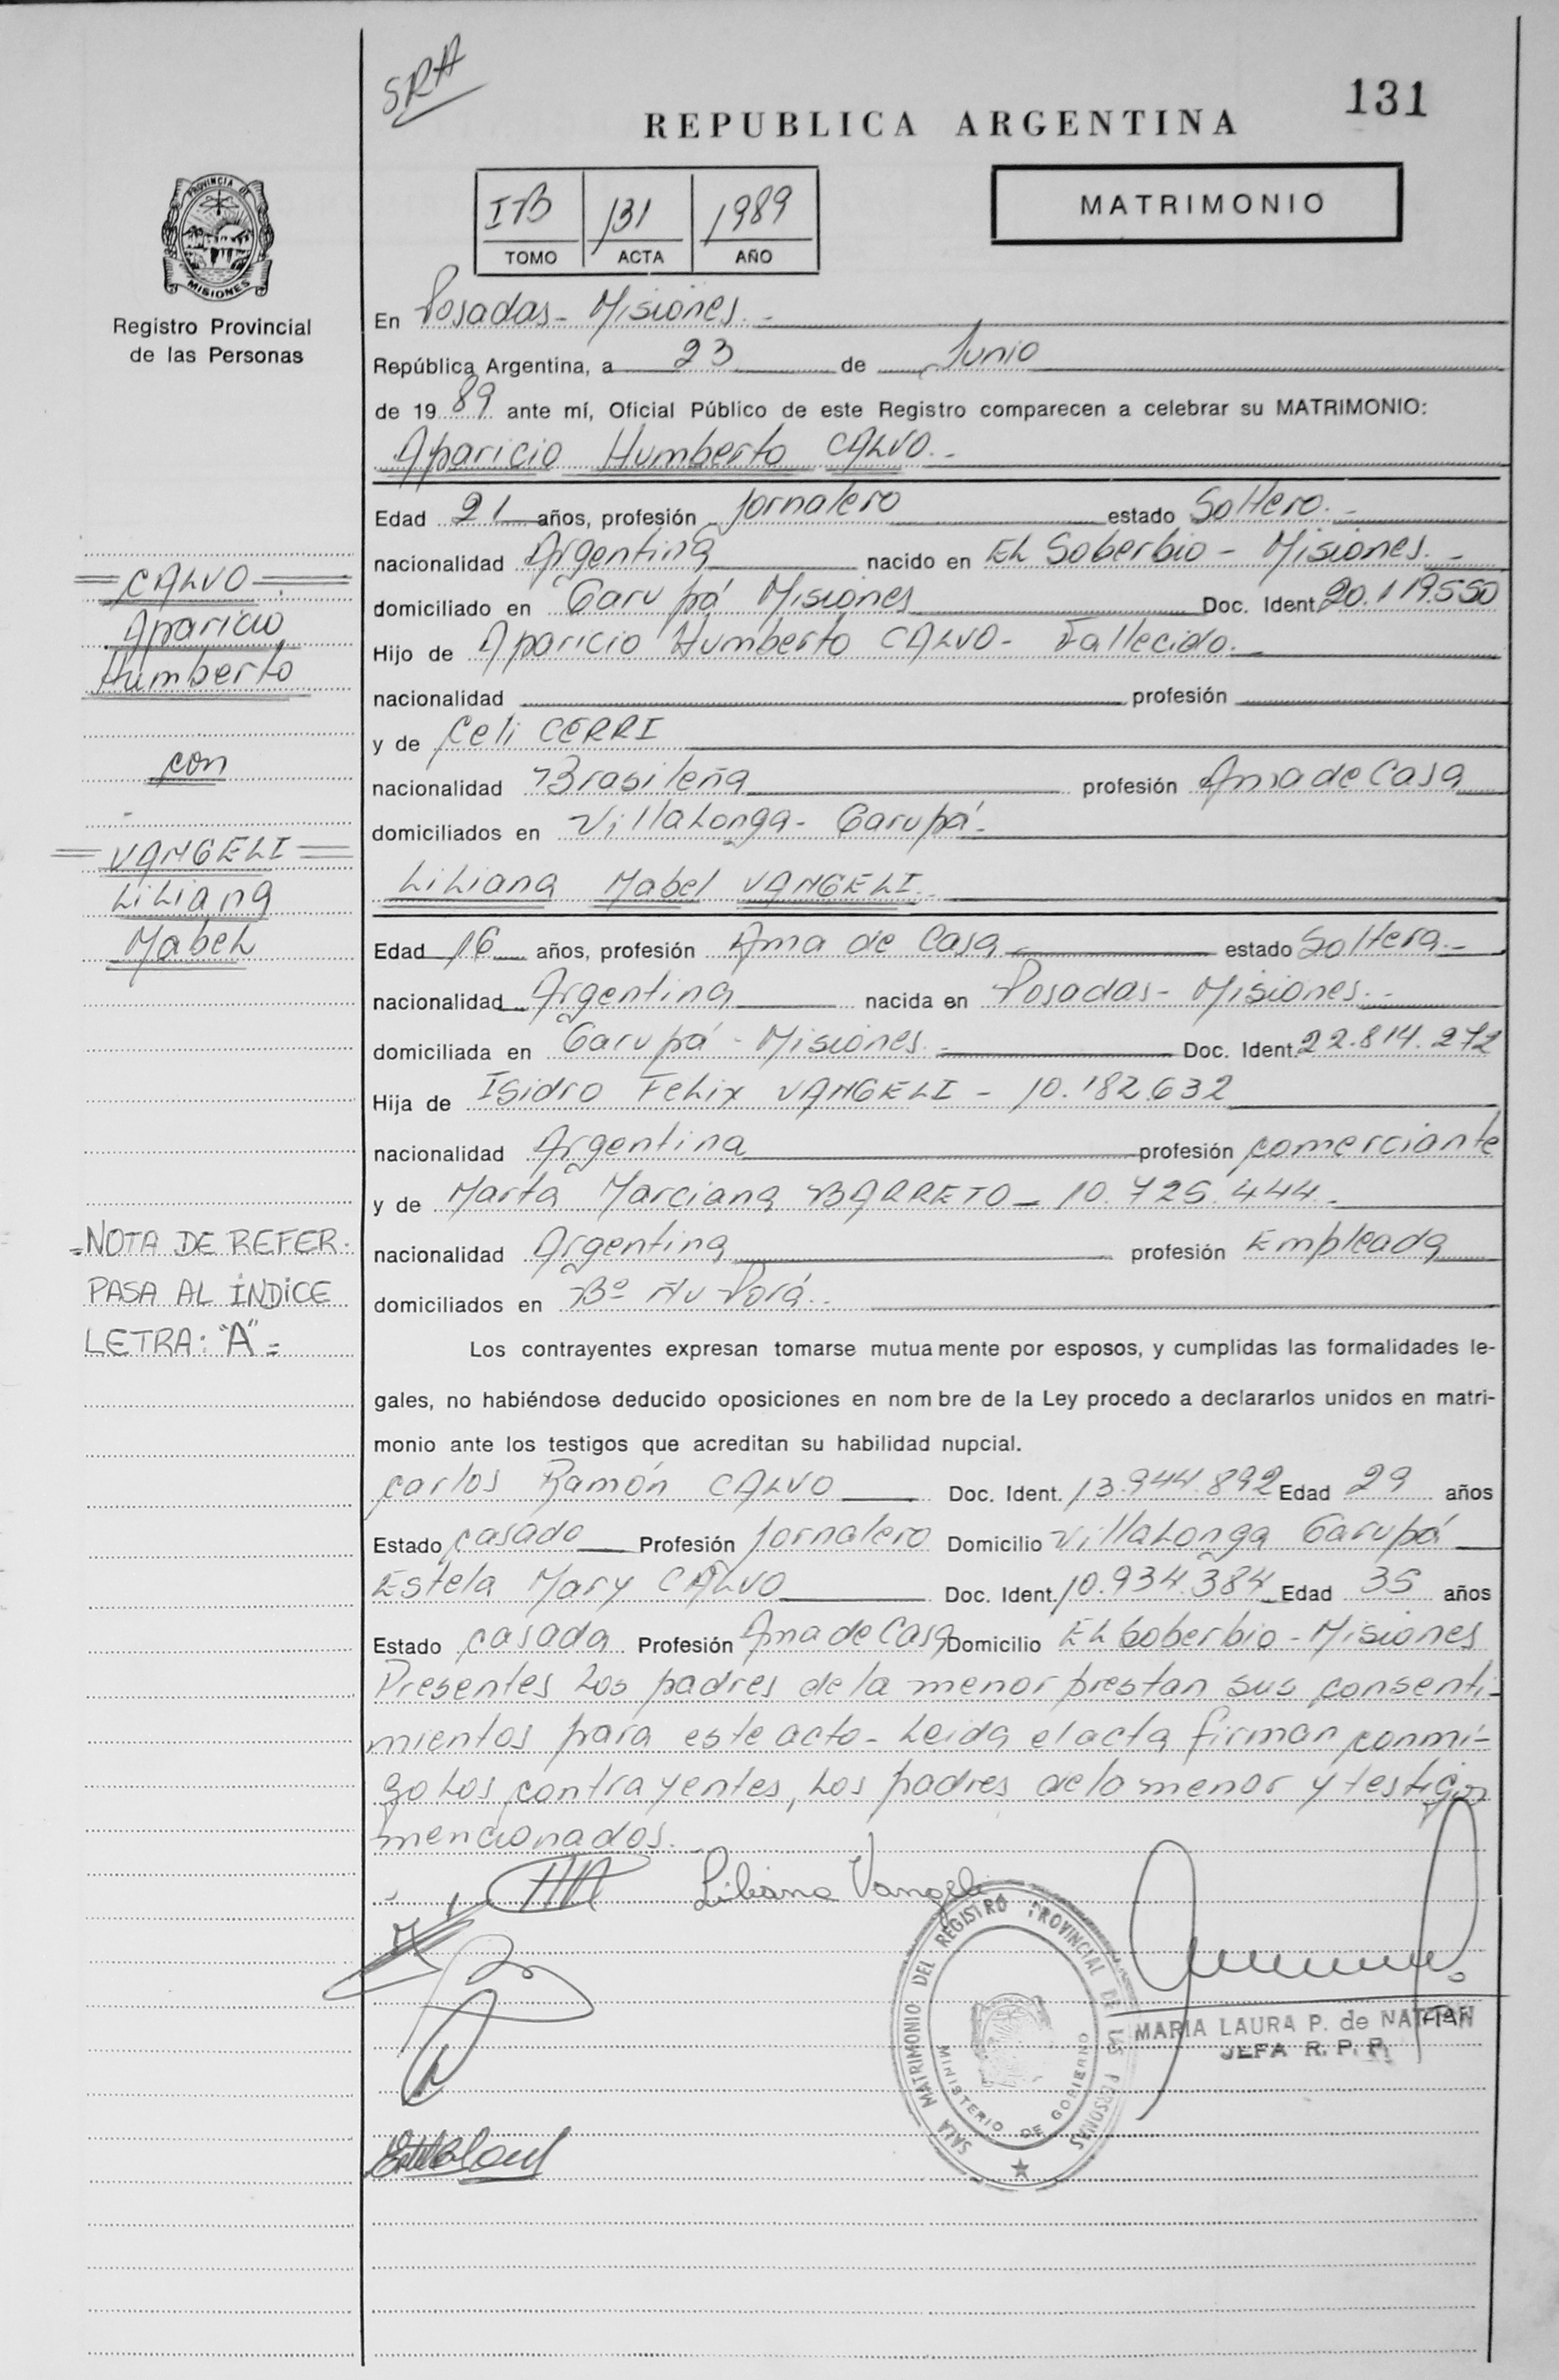 SRA
131
REPUBLICA ARGENTINA
PROVINCIA DE
MISIONES
Registro Provincial
de las Personas
ITB 131 1989
TOMO ACTA AÑO
MATRIMONIO
En Posadas - Misiones.-
República Argentina, a 23 de Junio
de 1989 ante mí, Oficial Público de este Registro comparecen a celebrar su MATRIMONIO:
Aparicio Humberto CALVO.-
Edad 21 años, profesión Jornalero estado Soltero.-
nacionalidad Argentina nacido en El Soberbio - Misiones.-
domiciliado en Garupá Misiones Doc. Ident. 20.119.550
Hijo de Aparicio Humberto CALVO - Fallecido.-
nacionalidad profesión
y de Celi CERRI
nacionalidad Brasileña profesión Ama de Casa
domiciliados en Villa Longa - Garupá.-
Liliana Mabel VANGELI.-
Edad 16 años, profesión Ama de Casa estado Soltera.-
nacionalidad Argentina nacida en Posadas - Misiones.-
domiciliada en Garupá - Misiones.- Doc. Ident. 22.814.272
Hija de Isidro Felix VANGELI - 10.182.632
nacionalidad Argentina profesión comerciante
y de Marta Marciana BARRETO - 10.725.444.-
nacionalidad Argentina profesión Empleada
domiciliados en Bº Ñu Porá.-
Los contrayentes expresan tomarse mutuamente por esposos, y cumplidas las formalidades le-
gales, no habiéndose deducido oposiciones en nombre de la Ley procedo a declararlos unidos en matri-
monio ante los testigos que acreditan su habilidad nupcial.
Carlos Ramón CALVO Doc. Ident. 13.944.892 Edad 29 años
Estado casado Profesión Jornalero Domicilio Villa Longa Garupá
Estela Mary CALVO Doc. Ident. 10.934.384 Edad 35 años
Estado casada Profesión Ama de Casa Domicilio El Soberbio - Misiones
Presentes los padres de la menor prestan sus consenti-
mientos para este acto - Leida el acta firman conmi-
go los contrayentes, los padres de la menor y testigos
mencionados.
Liliana Vangeli
SALA MATRIMONIO DEL REGISTRO PROVINCIAL DE LAS PERSONAS
MINISTERIO DE GOBIERNO
MARIA LAURA P. de NATTAN
JEFA R. P. P.
CALVO
Aparicio
Humberto
con
VANGELI
Liliana
Mabel
=NOTA DE REFER.
PASA AL INDICE
LETRA: "A"=